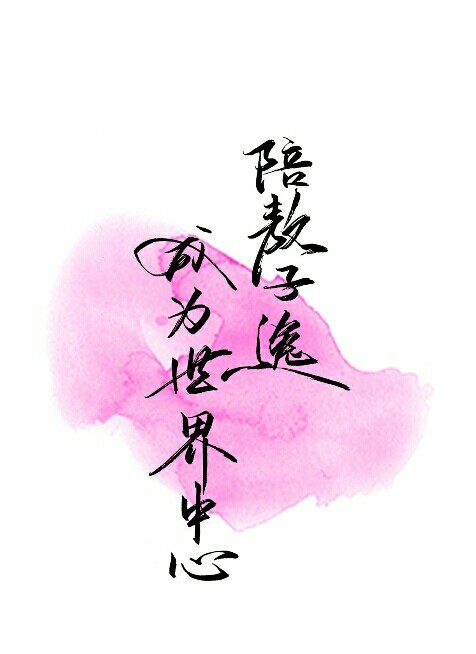 陪敖子逸
成为世界中心